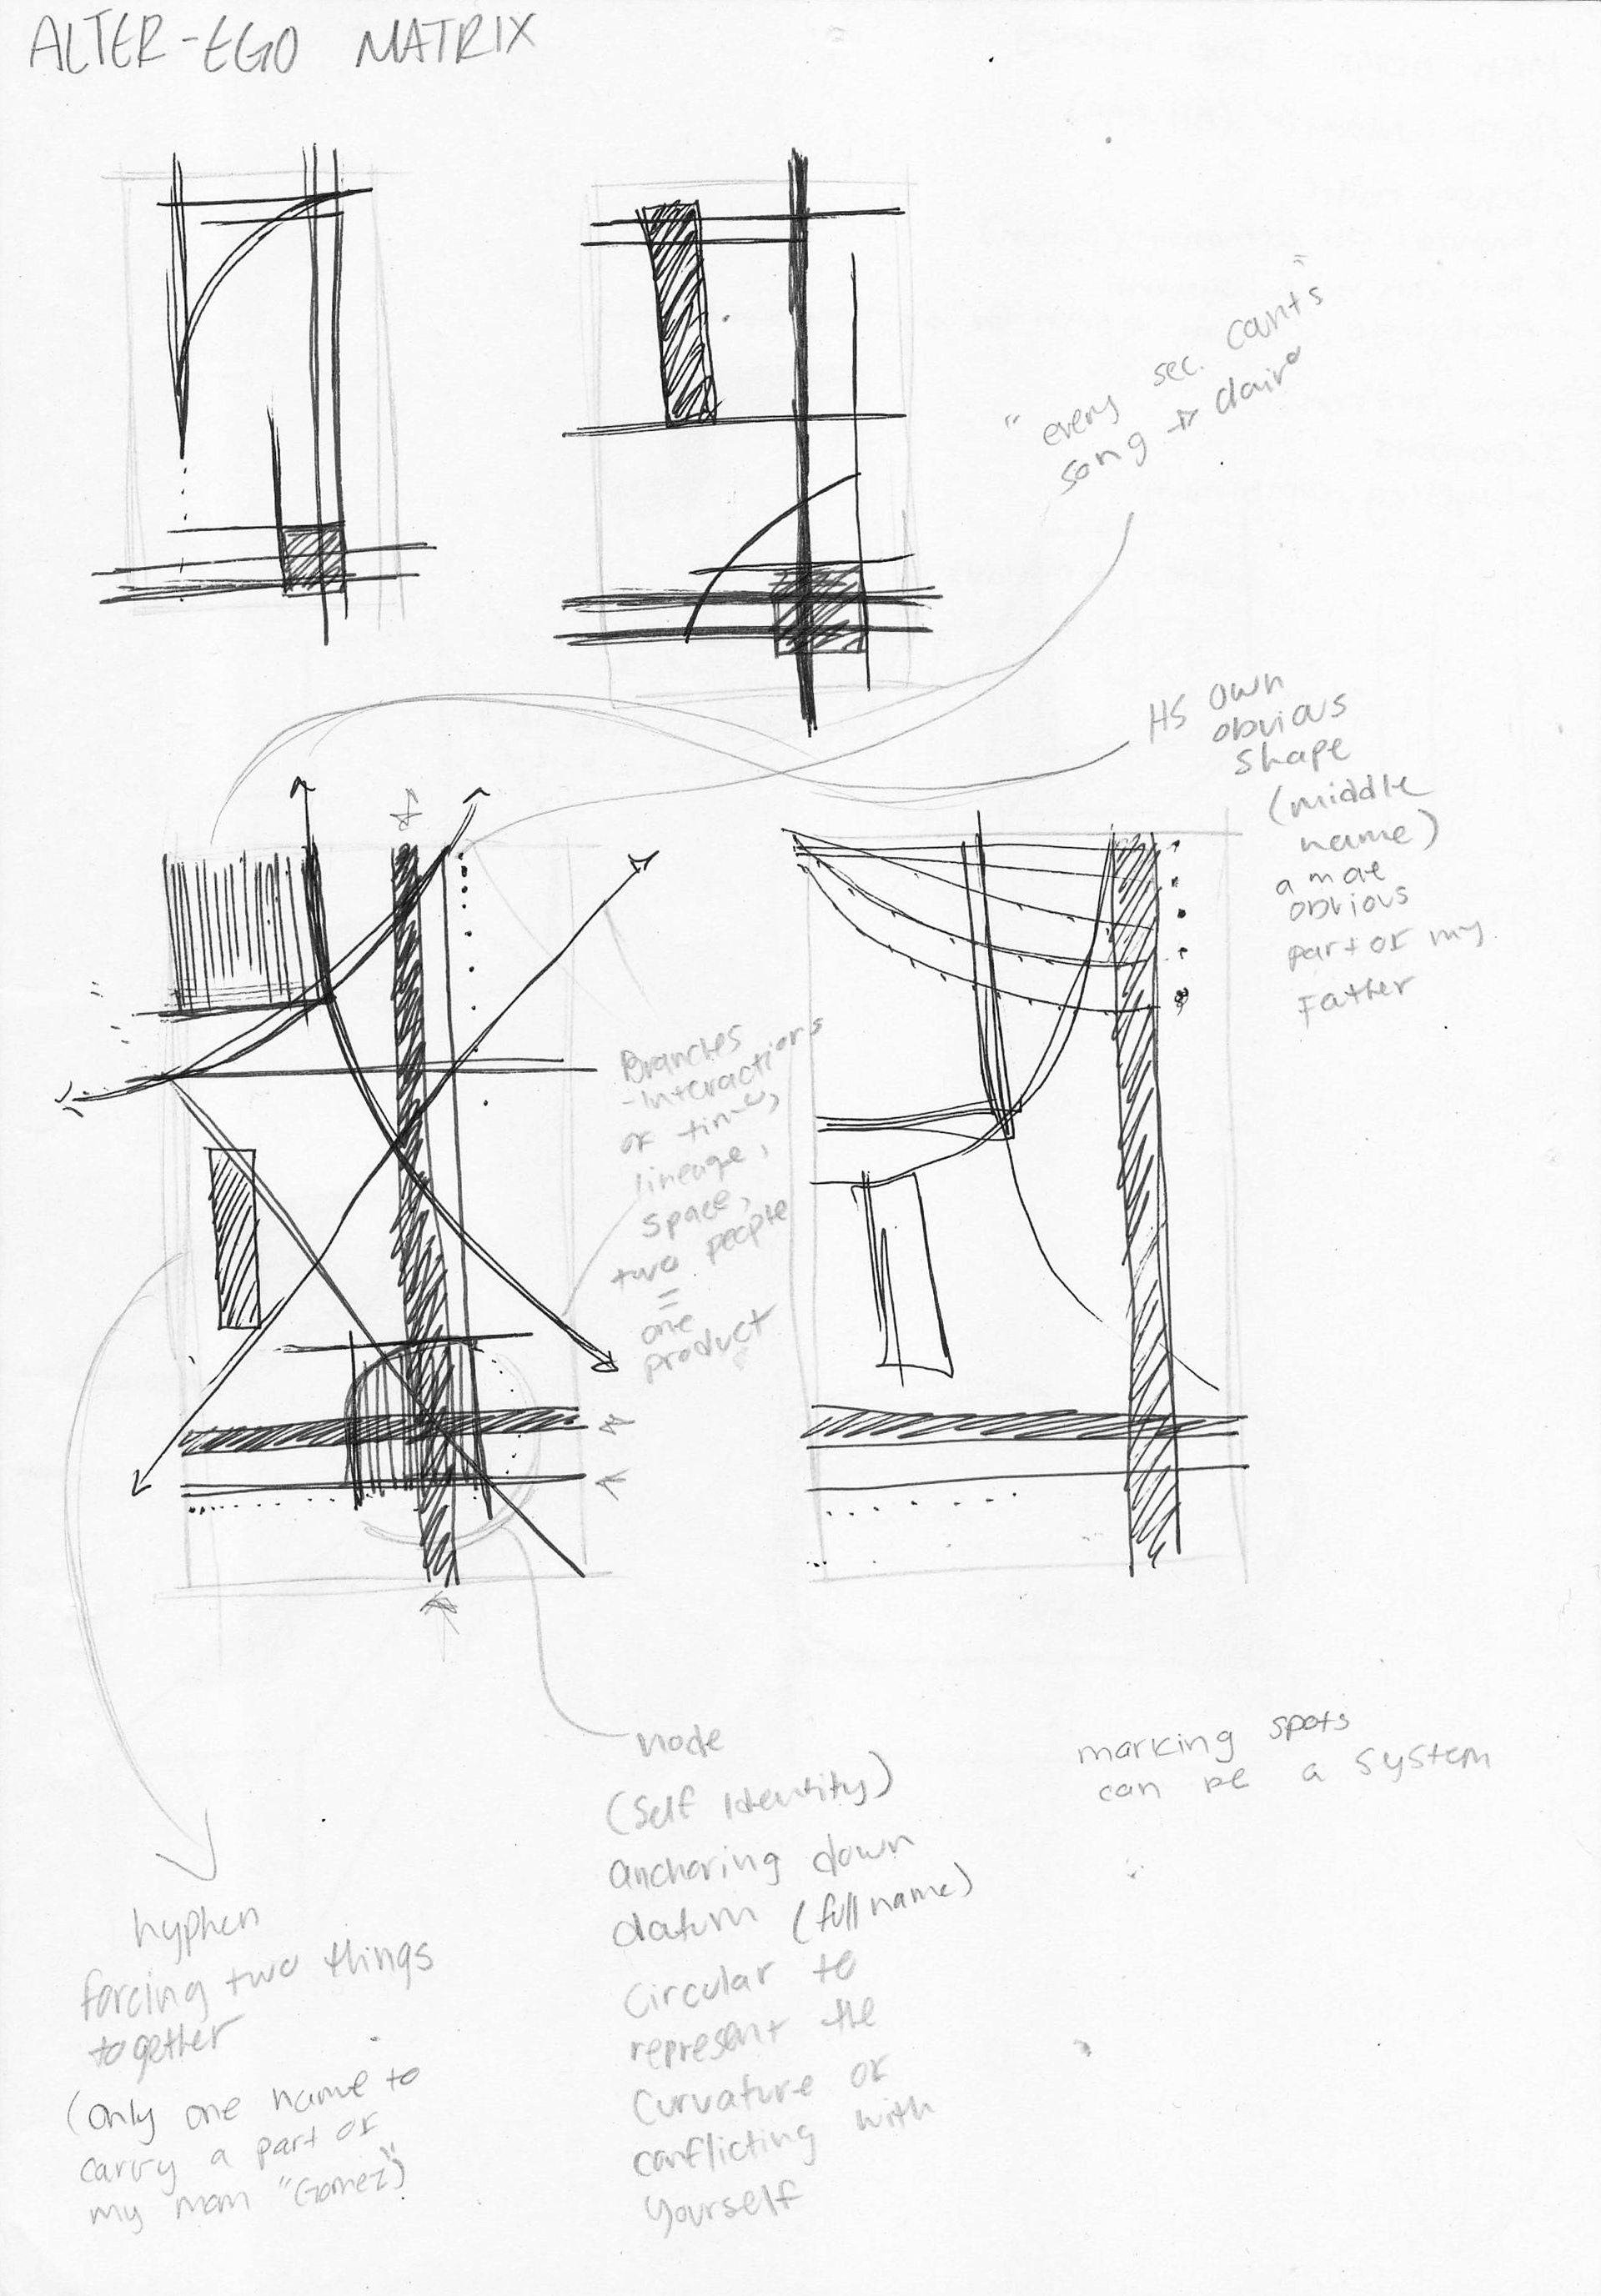 ALTER-EGO MATRIX
"every sec. counts"
song → clairo
HS own
obvious
shape
(middle
name)
a mae
obvious
part of my
Father
Branches
-interactions
of time,
lineage,
space,
two people
=
one
product
node
(Self Identity)
anchoring down
datum (full name)
Circular to
represent the
Curvature of
conflicting with
yourself
marking spots
can be a system
hyphen
forcing two things
together
(Only one name to
carry a part of
my mom "Gomez")